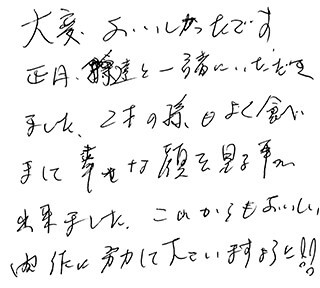 大変、おいしかったです
正月、孫達と一諸にいただき
ました、2才の孫もよく食べ
まして幸せな顔を見る事が
出来ました。これからもおいしい
に努力して下さいますように!!